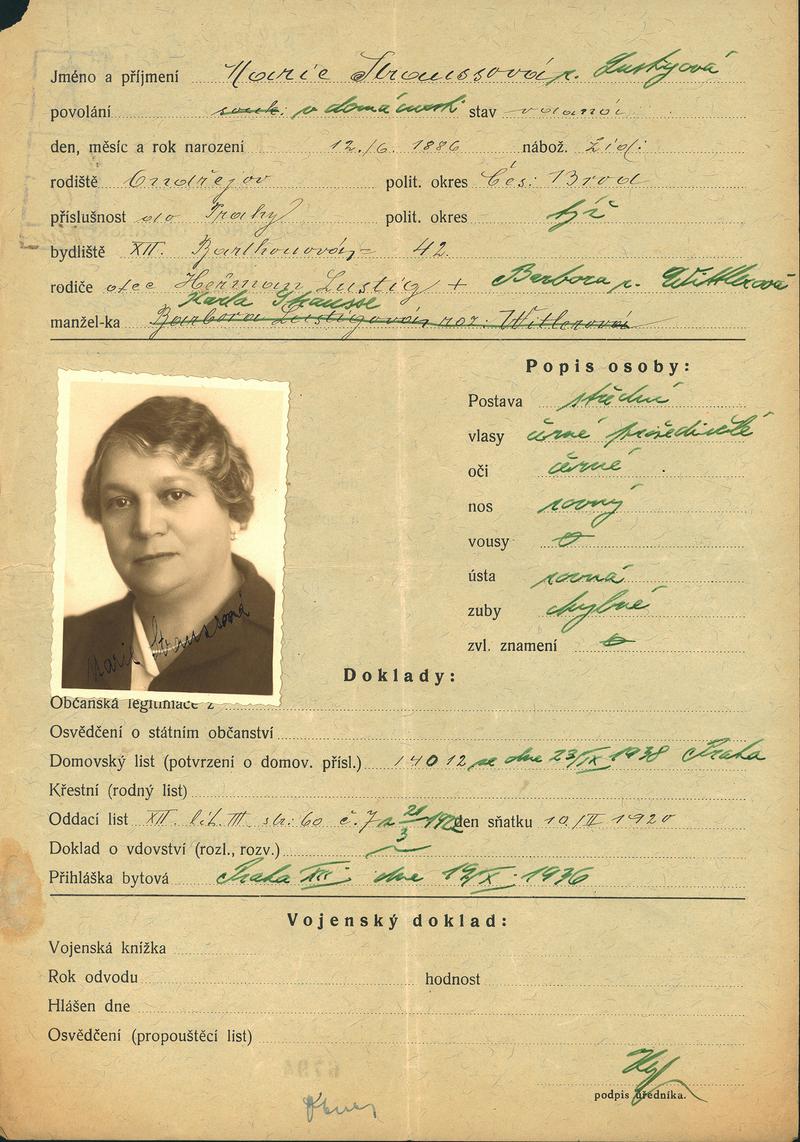 Jméno a příjmení Marie Straussová r. Lustigová
povolání souk. v domácnosti stav vdaná
den, měsíc a rok narození 12./6. 1886 nábož. žid.
rodiště Ondřejov polit. okres Čes. Brod
příslušnost do Prahy polit. okres týž
bydliště XII. Barthouová 42.
rodiče otec Heřman Lustig + Barbora r. Wittlerová
Karla Strausse
manžel-ka Barbora Lustigová, roz. Witlerová
Popis osoby:
Postava střední
vlasy černé prošedivělé
oči černé
nos rovný
vousy
ústa rovná
zuby chybné
zvl. znamení
Marie Straussová
Doklady:
Občanská legitimace z
Osvědčení o státním občanství
Domovský list (potvrzení o domov. přísl.) 14012 ze dne 23/IX 1938 Praha
Křestní (rodný list)
Oddací list XII. lit. III str. 60 č. 7 den sňatku 10/II 1920
Doklad o vdovství (rozl., rozv.)
Přihláška bytová Praha XII. dne 19/X. 1936
Vojenský doklad:
Vojenská knížka
Rok odvodu hodnost
Hlášen dne
Osvědčení (propouštěcí list)
podpis úředníka.